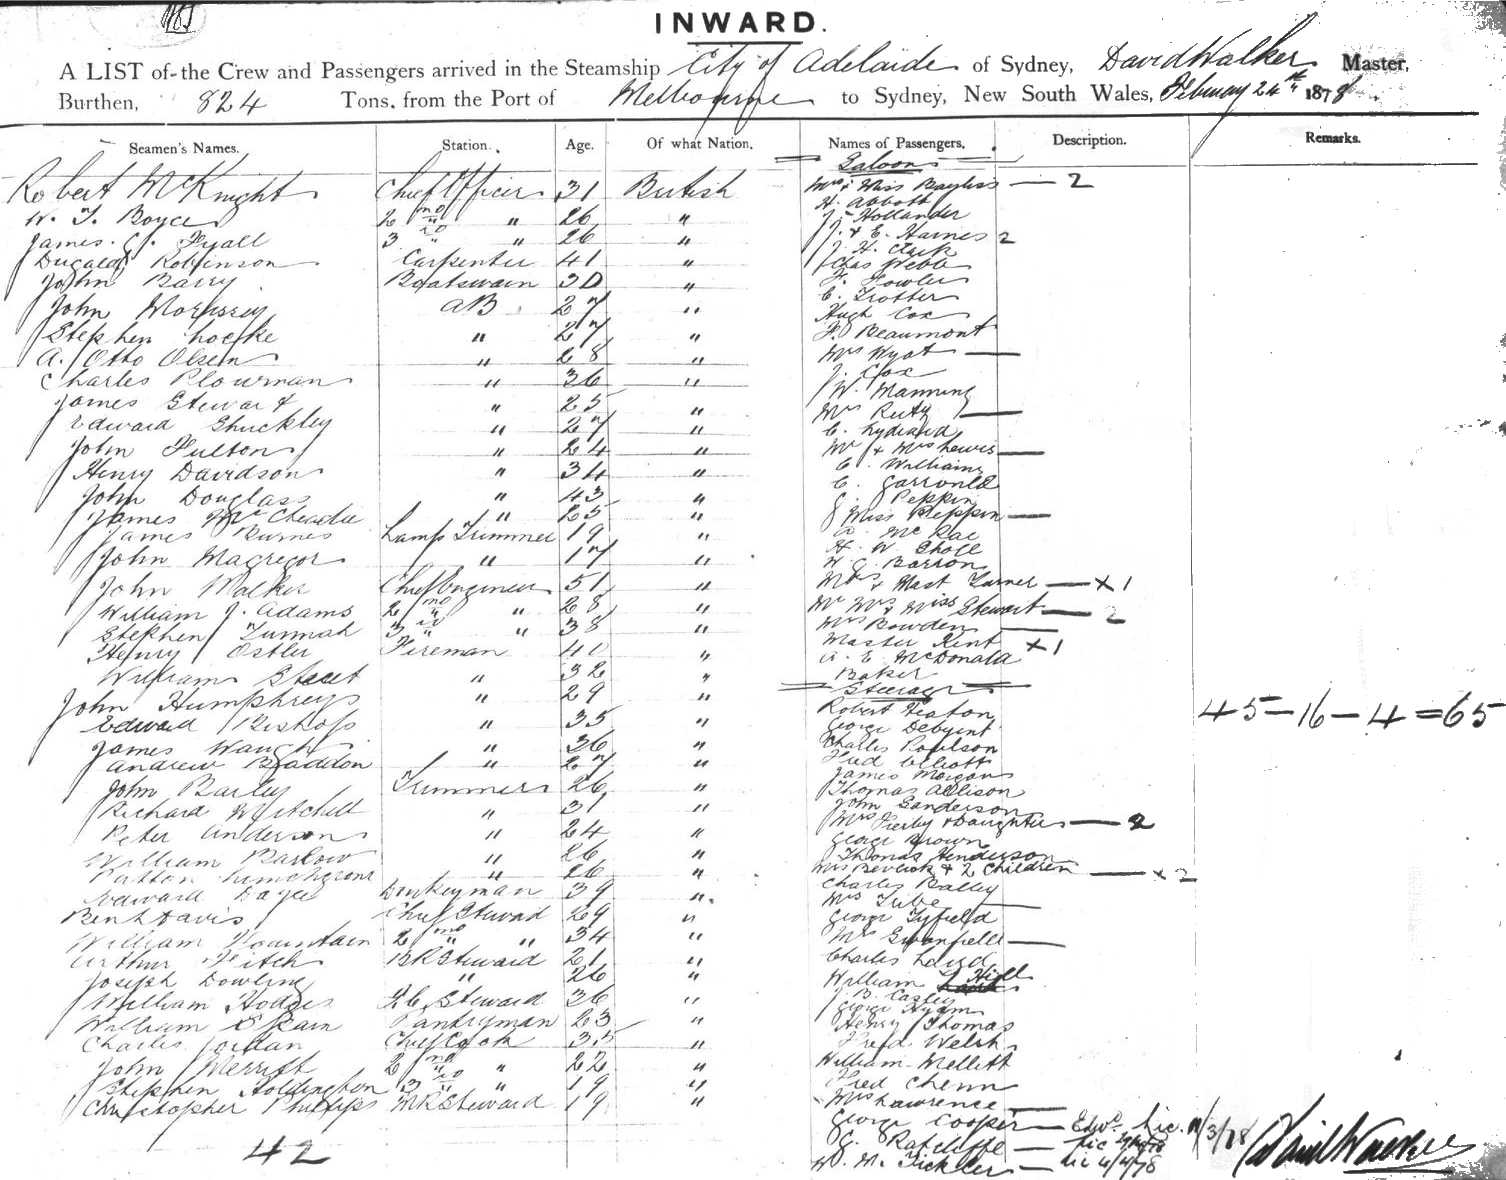 INWARD.
A LIST of the Crew and Passengers arrived in the Steamship City of Adelaide of Sydney, David Walker Master,
Burthen, 824 Tons, from the Port of Melbourne to Sydney, New South Wales, February 24th 1878
Seamen's Names. Station. Age. Of what Nation. Names of Passengers. Description. Remarks.
Saloon
Robert McKnight Chief Officer 31 British Mrs & Miss Bayliss — 2
H. Abbott
W. T. Boyce 2nd " 26 " J. Hollander
James. G. Fyall 3rd " 26 " J. & E. Haines 2
J. H. Clark
Dugald Robinson Carpenter 41 " Chas Webb
John Barry Boatswain 30 " F. Fowler
C. Trotter
John Morrissey AB 27 " Hugh Cox
Stephen Locke " 27 " F. Beaumont
A. Otto Olsen " 28 " Mrs Wyat —
Charles Plowman " 36 " J. Cox
W. Manning
James Stewart " 25 " Mrs Rutz —
Edward Shuckley " 27 " C. Lydiard
John Fulton " 24 " Mr & Mrs Lewis —
Henry Davidson " 34 " C. Williams
C. Garronld
John Douglass " 43 " J. Peppin
James McCheadie " 25 " Miss Peppin —
James Burnes Lamp Trimmer 19 " A. McRae
H. W. Choll
John Macgregor " 17 " W. G. Barron
John Walker Chief Engineer 51 " Mrs & Mast Turner — x 1
William J. Adams 2nd " 28 " Mr Mrs & Miss Stewart — 2
Stephen Turmah 3rd " 38 " Mrs Bowden —
Henry Ostler Fireman 40 " Master Kent x 1
A. E. McDonald
William Street " 32 " Baker
Steerage
John Humphreys " 29 " Robert Heaton
45 — 16 — 4 = 65
Edward Bishop " 35 " George Debyent
Charles Poulson
James Waugh " 36 " Fred Elliott
Andrew Braddon " 27 " James Morgan
John Barley Trimmers 26 " Thomas Allison
Richard Mitchell " 31 " John Sanderson
Mrs Fierby & Daughter — 2
Peter Anderson " 24 " George Brown
William Barlow " 26 " Thomas Henderson
Watton " 26 " Mrs Bevlock & 2 Children — x 2
Edward Donkeyman 39 " Charles Balley
Mrs Tube —
Ben L Davis Chief Steward 29 " George Tyfield
William Fountain 2nd " " 34 " Mrs Swanfield —
Arthur Fitch BR Steward 21 " Charles Laud
Joseph Dowling " 26 " William Hill
William Hodges F.C. Steward 36 " J. B. Casley
George Hyam
William Skain Pantryman 23 " Henry Thomas
Charles Jordan Chief Cook 35 " Fred Welsh
John Merritt 2nd " " 22 " William Mellitt
Stephen Holdington 3rd " " 19 " Fred Chenn
Christopher Phillips MR Steward 19 " Mrs Lawrence —
George Cooper — Edwd. Lic. 11/3/78
42
G. Ratcliffe — Lic
W. M. Tickler — Lic 4/4/78
David Walker